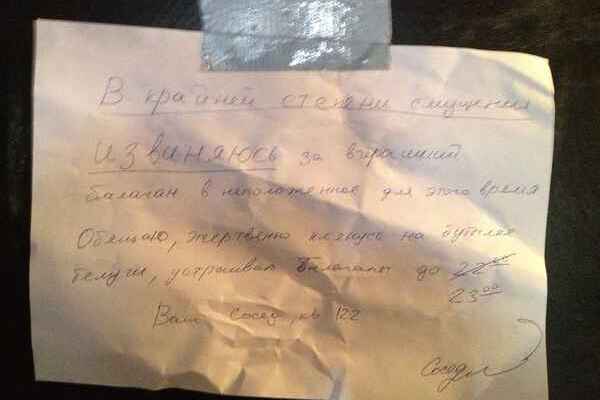 В крайней степени смущения
ИЗВИНЯЮСЬ за вчерашний
балаган в неположенное для этого время
Обещаю, жертвенно клянусь на бутылке
белуги, устраивал балаганы до 22:00
23:00
Ваш сосед, кв 122
Сосед